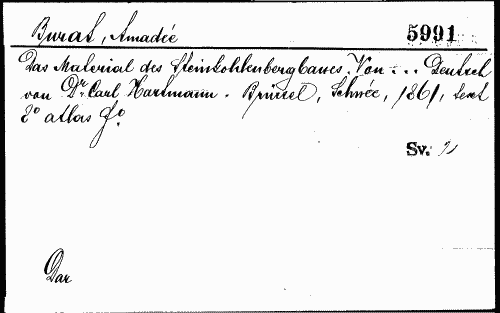 Burat, Amadée 5991
Das Material des Steinkohlenbergbaues. Von ... Deutsch
von Dr. Carl Hartmann. Brüssel, Schnée, 1861, text
8° atlas f°.
Sv. 2
Dar